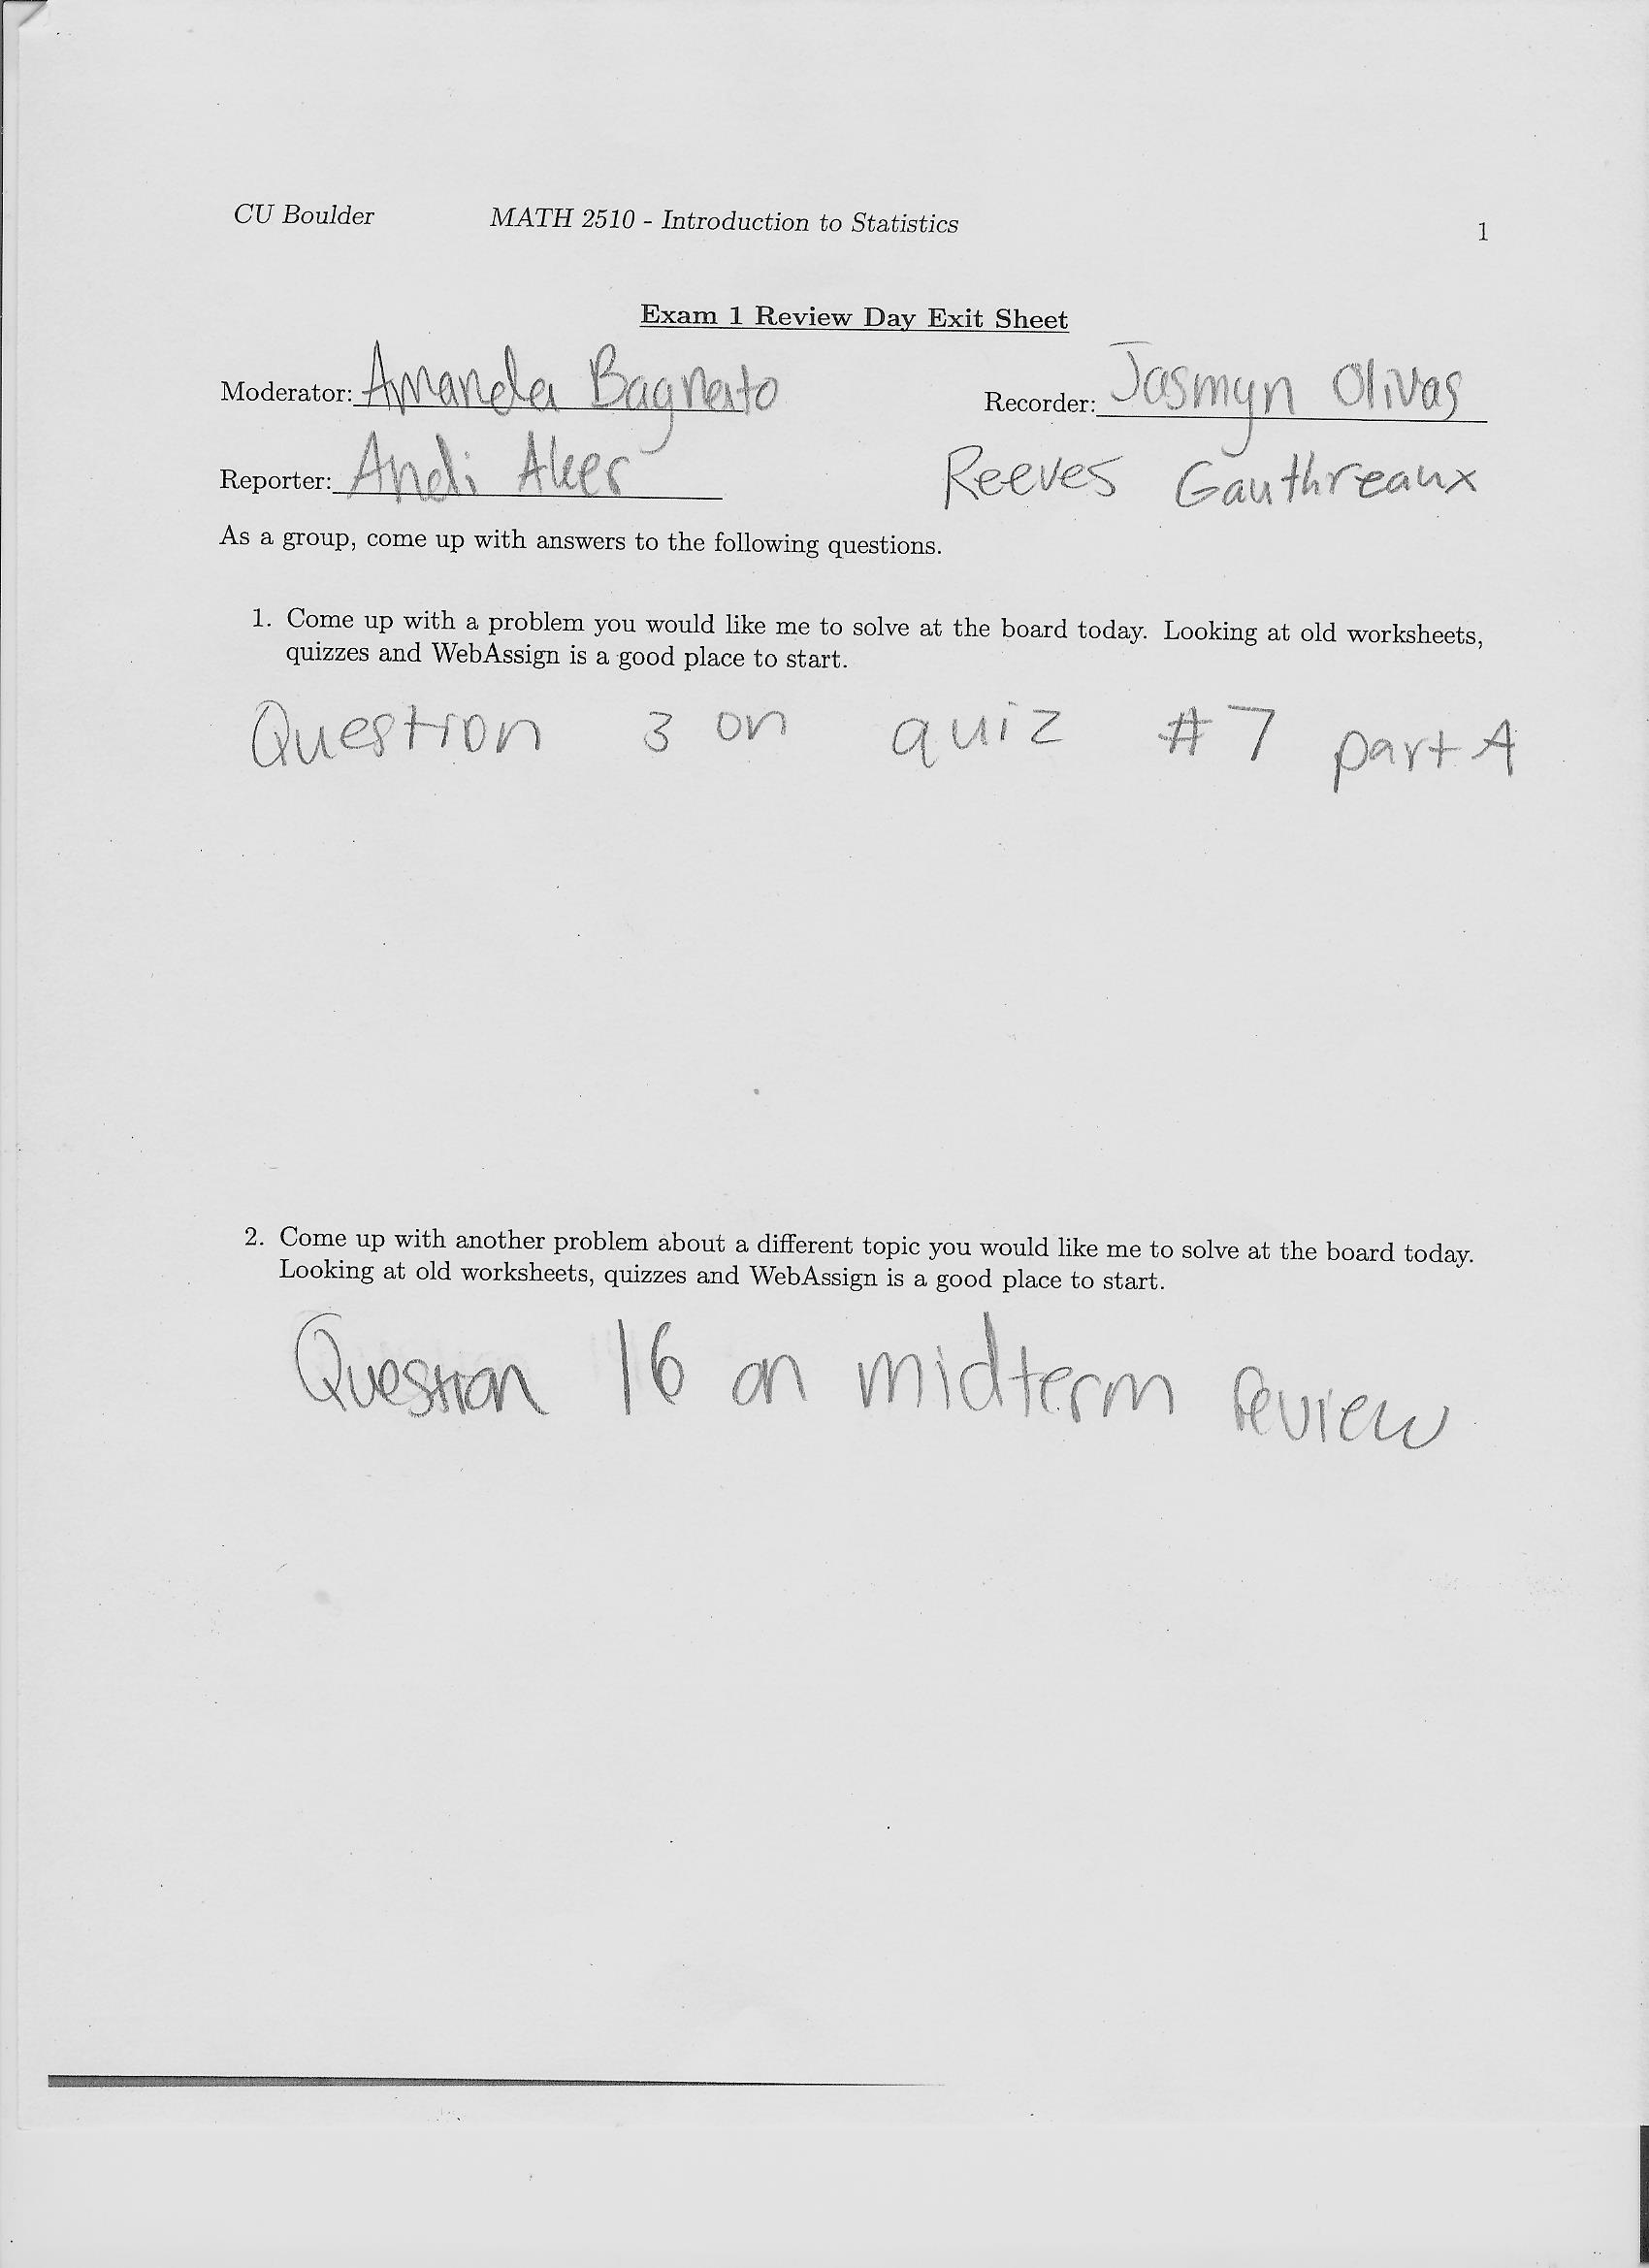 CU Boulder MATH 2510 - Introduction to Statistics 1
Exam 1 Review Day Exit Sheet
Moderator: Amanda Bagnato Recorder: Jasmyn Olivas
Reporter: Andi Aker Reeves Gauthreaux
As a group, come up with answers to the following questions.
1. Come up with a problem you would like me to solve at the board today. Looking at old worksheets,
quizzes and WebAssign is a good place to start.
Question 3 on quiz #7 part A
2. Come up with another problem about a different topic you would like me to solve at the board today.
Looking at old worksheets, quizzes and WebAssign is a good place to start.
Question 16 on midterm review